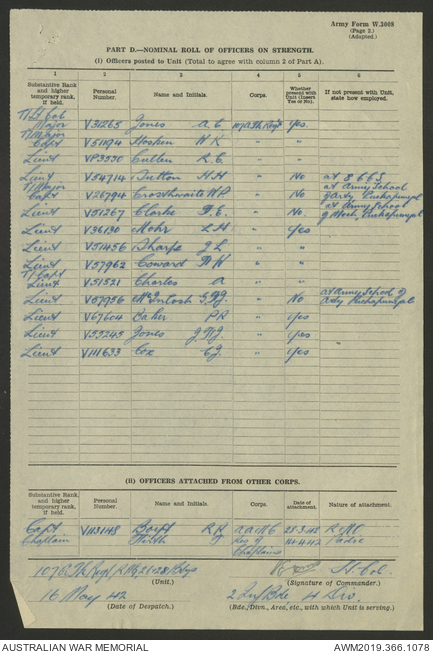 Army Form W.3008
(Page 2.)
(Adapted.)
PART D.—NOMINAL ROLL OF OFFICERS ON STRENGTH.
(i) Officers posted to Unit (Total to agree with column 2 of Part A).
1 2 3 4 5 6
Substantive Rank and higher temporary rank, if held. Personal Number. Name and Initials. Corps. Whether present with Unit (Insert Yes or No). If not present with Unit, state how employed.
T/Lt Col
Major V31265 Jones A E Yes
T/Major
Capt Hoskin W K " "
Lieut VP3330 Cullen R E " "
Lieut V54714 Dutton H H " No at
T/Major at Army School
Capt V26794 Crosthwaite W P " No Puckapunyal
Lieut V51267 Clarke F. E. " No. at Army School
Puckapunyal
Lieut V36130 Mohr L H " Yes
Lieut V51456 Tharpe J L " "
Lieut V57962 Coward D W " "
T/Capt
Lieut V51521 Charles A " "
Lieut V57956 McIntosh " No at Army School of
Puckapunyal
Lieut V67604 Baker P R " Yes
Lieut V55245 Jones " Yes
Lieut V111633 Cox " Yes
(ii) OFFICERS ATTACHED FROM OTHER CORPS.
Substantive Rank and higher temporary rank, if held. Personal Number. Name and Initials. Corps. Date of attachment. Nature of attachment.
Capt AAMC RMO
Chaplain Padre
Chaplains
Lt Col
(Unit.) (Signature of Commander.)
16 May 42 2 Inf Bde 4 Div.
(Date of Despatch.) (Bde., Divn., Area, etc., with which Unit is serving.)
AUSTRALIAN WAR MEMORIAL AWM2019.366.1078